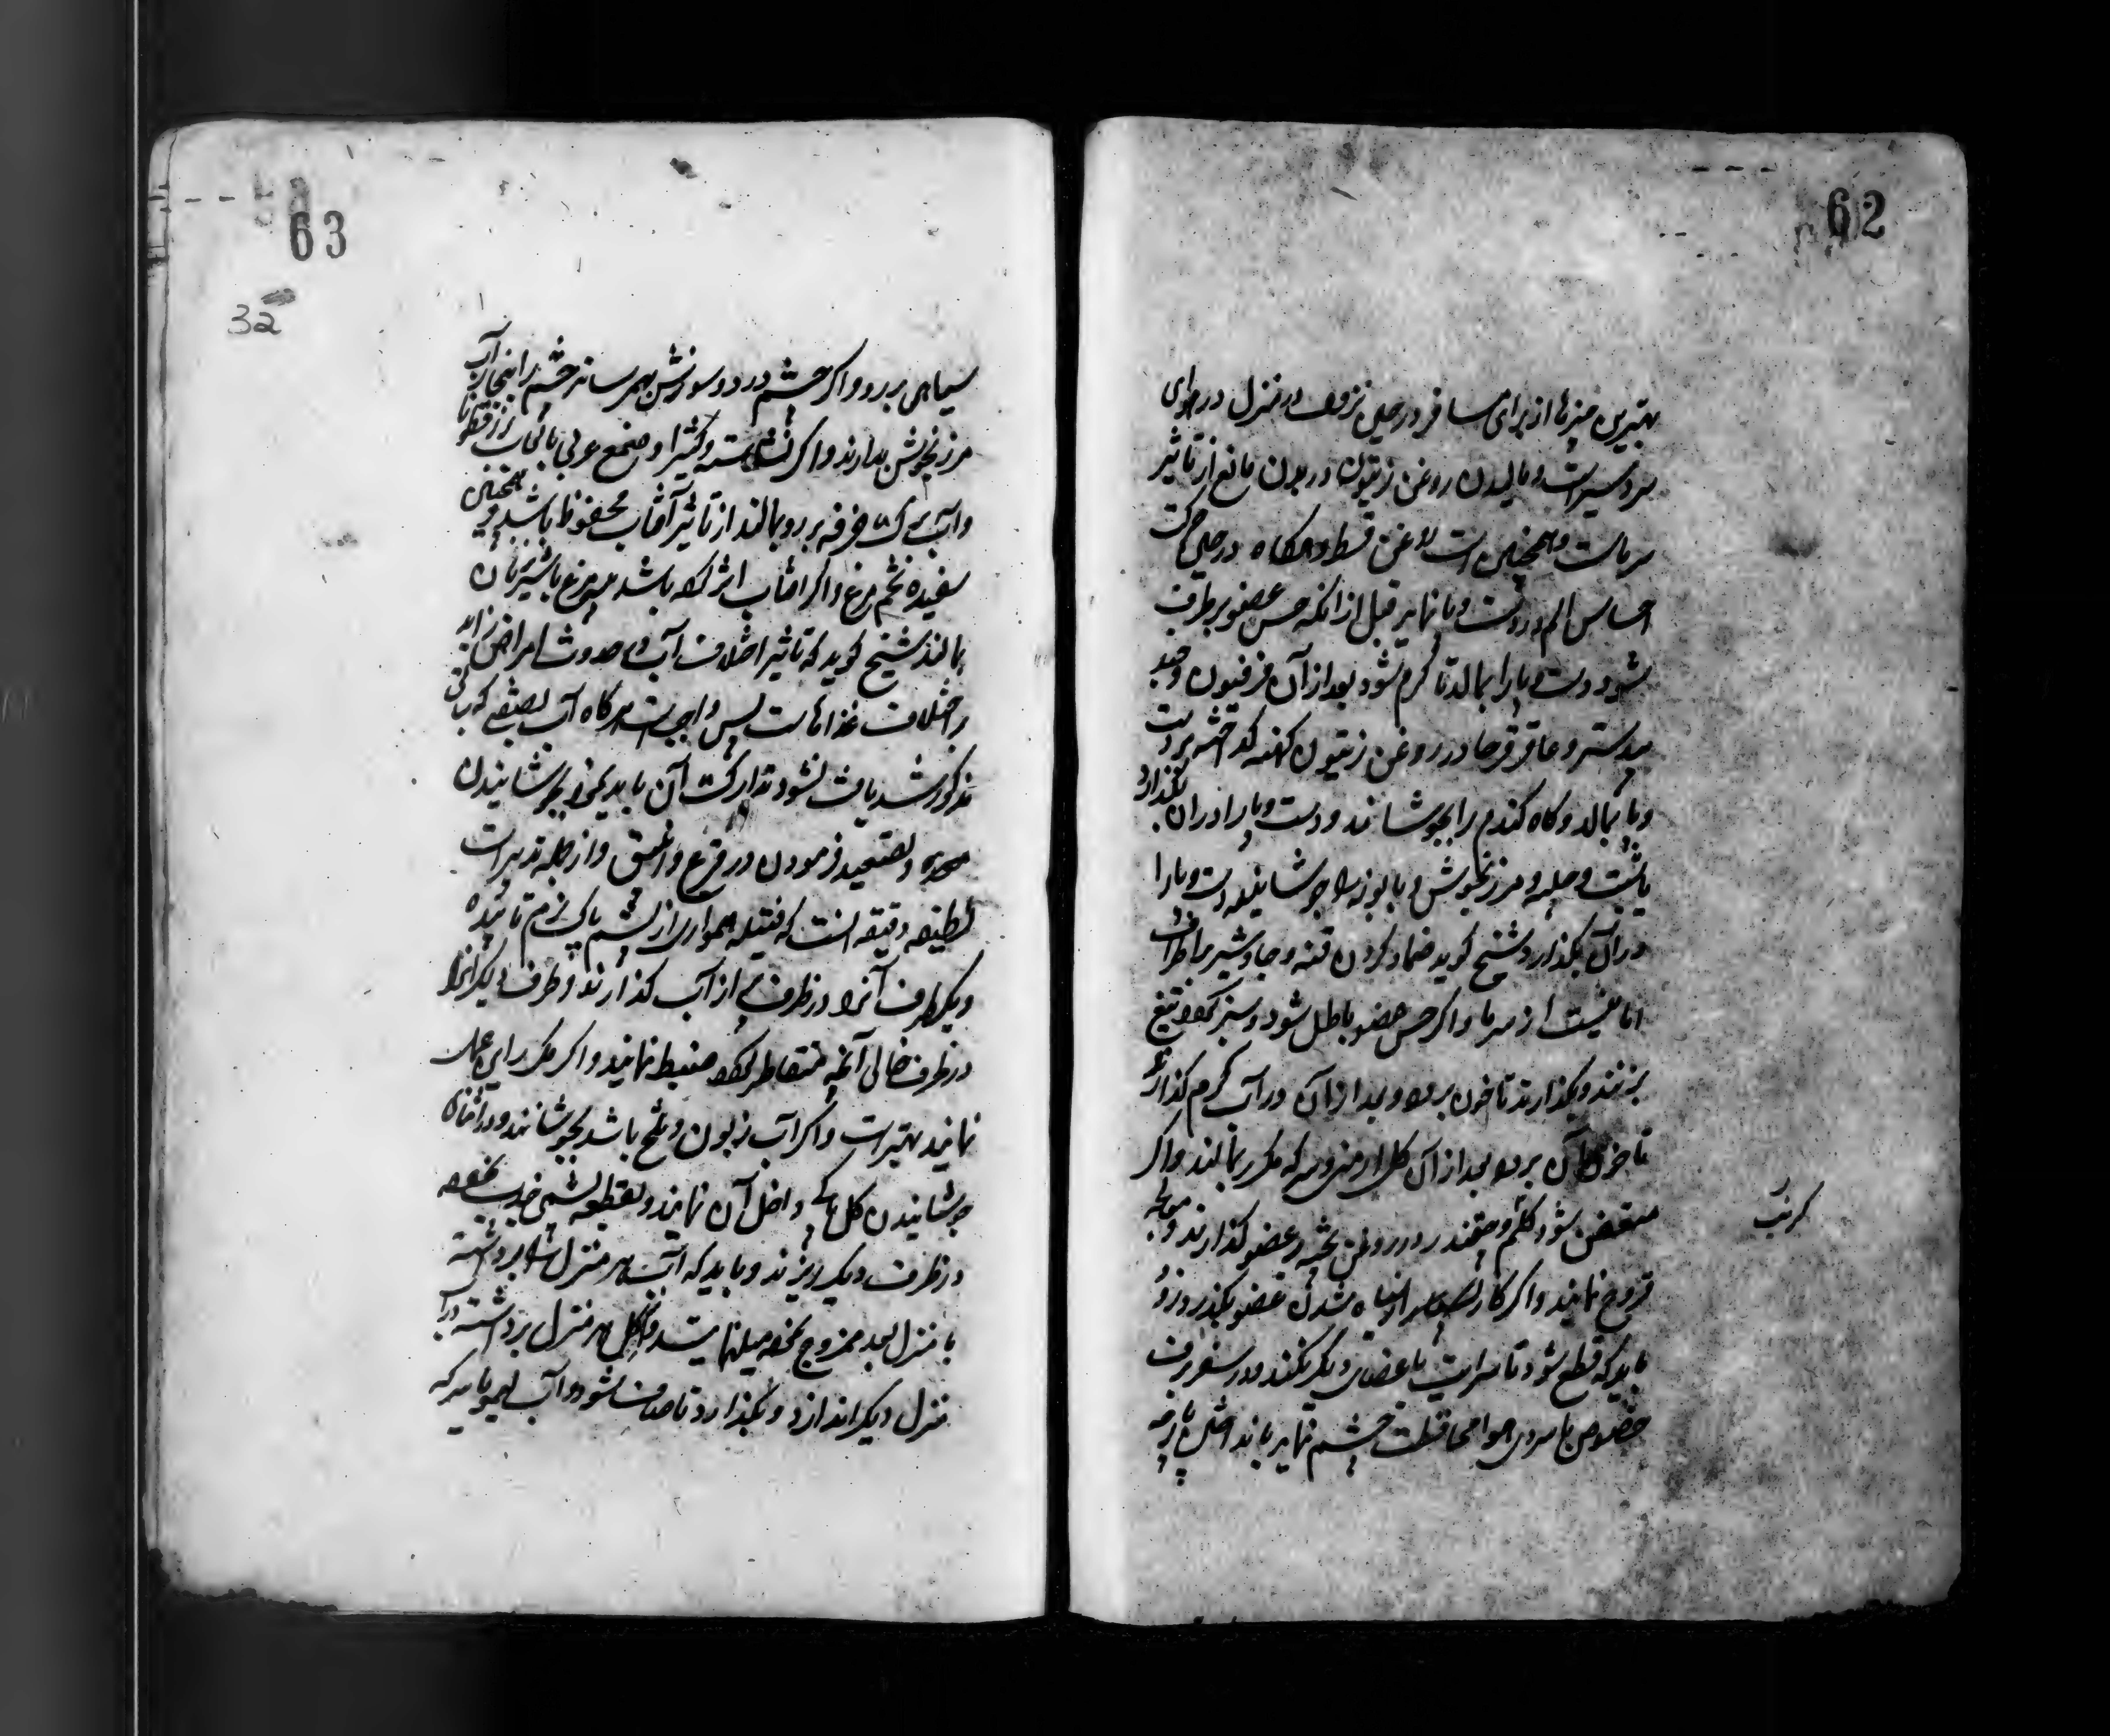 62
بهترین چیزها از برای مسافر در حین نزول در منزل در هوای
سرد سیر است و مالیدن روغن زیتون در بدن مانع از تاثیر
سرماست و همچنین است روغن قسط و هرکاه در حین حرکت
احساس الم در دست و پا نماید قبل از انکه حس عضو برطرف
شود دست و پا را بمالد تا کرم شود بعد از آن فرفیون و جند
بیدستر و عاقرقرحا در روغن زیتون کهنه کداخته بر دست
و پا بمالد و کاه کندم را بجوشانند و دست و پا را در آن بگذارد
یا شبت و حلبه و مرزنجوش و بابونه را جوشانیده دست و پا را
در آن بگذارد و شیخ کوید ضماد کردن قنه و جاوشیر بر اطراف
امانیست از سرما و اکر حس عضو باطل شود و سبز کردد تیغ
بزنند و بگذارند تا خون برود و بعد از آن در آب کرم گذارند
تا خون آن برود بعد از آن کل ارمنی و سرکه مکرر بمالند و اکر
متعفن شود کلم و چغندر در روغن پخته بر عضو گذارند و معالجه
کرنب
قروح نمایند و اکر کار از سیاه شدن عضو بگذرد زود
باید که قطع شود تا سرایت باعضای دیگر نکند و در سفر برف
خصوص با سردی هوا محافظت چشم نماید بانداختن پارچه
63
32
سیاهی بر رو و اکر چشم درد و سوزش بهم رساند چشم را ببخار آب
مرزنجوش بدارند و اکر نشاسته و کتیرا و صمغ عربی بالعاب بزرقطونا
و آب برک خرفه بر رو بمالند از تاثیر آفتاب محفوظ باشد و همچنین
سفیده تخم مرغ و اکر آفتاب اثر کرده باشد پیه مرغ با شیر زنان
بمالند شیخ کوید که تاثیر اختلاف آب در حدوث امراض زیاده
بر اختلاف غذاهاست پس واجب است هرکاه آب بصفتی که سابق
مذکور شد یافت نشود تدارک آن باید نمود بجوشانیدن
و تصعید فرمودن در قرع و انبیق و از جمله تدبیرات
لطیفه دقیقه انست که فتیله همواری از پشم پاک نرم تابیده
و یکطرف آنرا در ظرف پر از آب گذارند و طرف دیگر آنرا
در ظرف خالی آنچه متقاطر کردد ضبط نمایند و اکر مکرر این عمل
نمایند بهتر است و اکر آب زبون و تلخ باشد بجوشانند و در اثنای
جوشانیدن کل پاکی داخل آن نمایند و بقطعه پشمی
در ظرف دیگر ریزند و باید که آب هر منزل را برداشته
با منزل بعد ممزوج نمود میل نمایند و کل هر منزل برداشته در آب
منزل دیگر اندازد و بگذارد تا صاف شود و آب لیمو یا سرکه